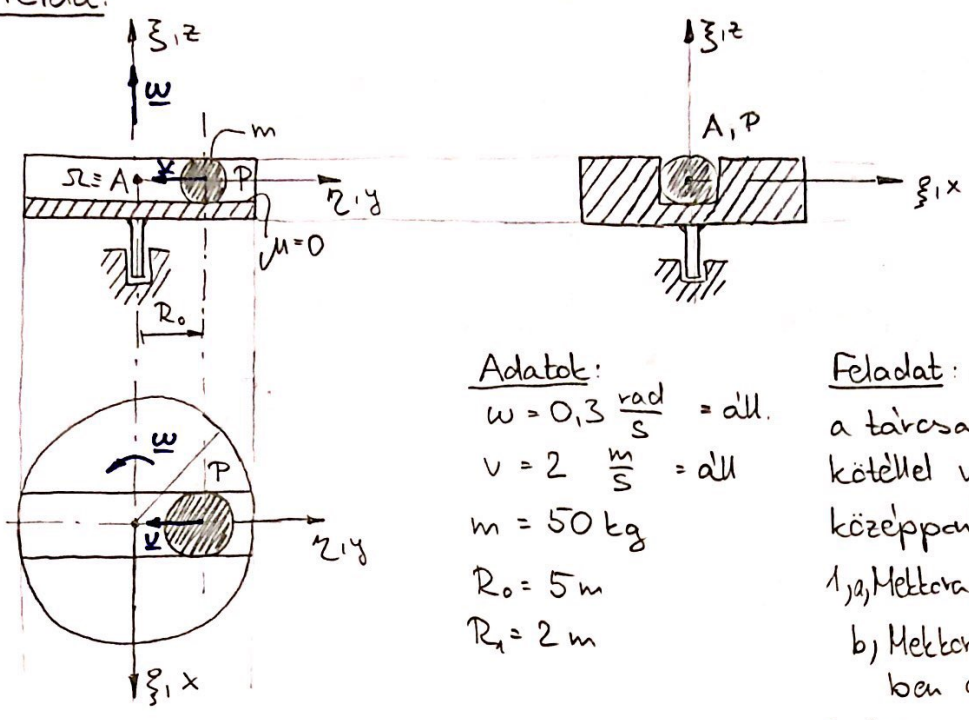 ξ,z
ω
m
Ω≡A
v
P
η,y
μ=0
R₀
ξ,z
A,P
ξ,x
ω
P
v
η,y
ξ,x
Adatok:
ω = 0,3 rad/s = áll.
v = 2 m/s = áll
m = 50 kg
R₀ = 5 m
R₁ = 2 m
Feladat:
a tárcsa
kötéllel v
középpon
1,a, Mekkora
b, Mekkor
ben